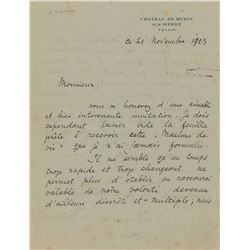 CHÂTEAU DE MUZOT
SUR SIERRE
VALAIS
ce 21 Novembre 1923
Monsieur,
vous m'honorez d'une aimable
et bien intentionnée invitation. Je dois
cependant laisser vide la feuille
prête à recevoir cette "Maxime de
vie" que je n'ai jamais formulée.
Il me semble qu'un temps
trop rapide et trop changeant ne
permet plus d'établir un raccourci
valable de notre volonté devenue
d'ailleurs discrète et "multiple; mais